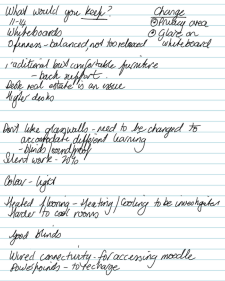 What would you keep?
Change
11-14
① Privacy area
Whiteboards
② Glare on whiteboard
Openness - balanced, not too relaxed
Traditional but comfortable furniture
- back support.
Desk real estate is an issue
Higher desks
Don't like glass walls - need to be changed to
accomodate different learning
- blinds/soundproof
Silent work - 70%
Colour - light
Heated flooring - Heating/Cooling to be investigated
Harder to cool rooms
Good blinds
Wired connectivity - for accessing moodle
Powerpounds - to recharge